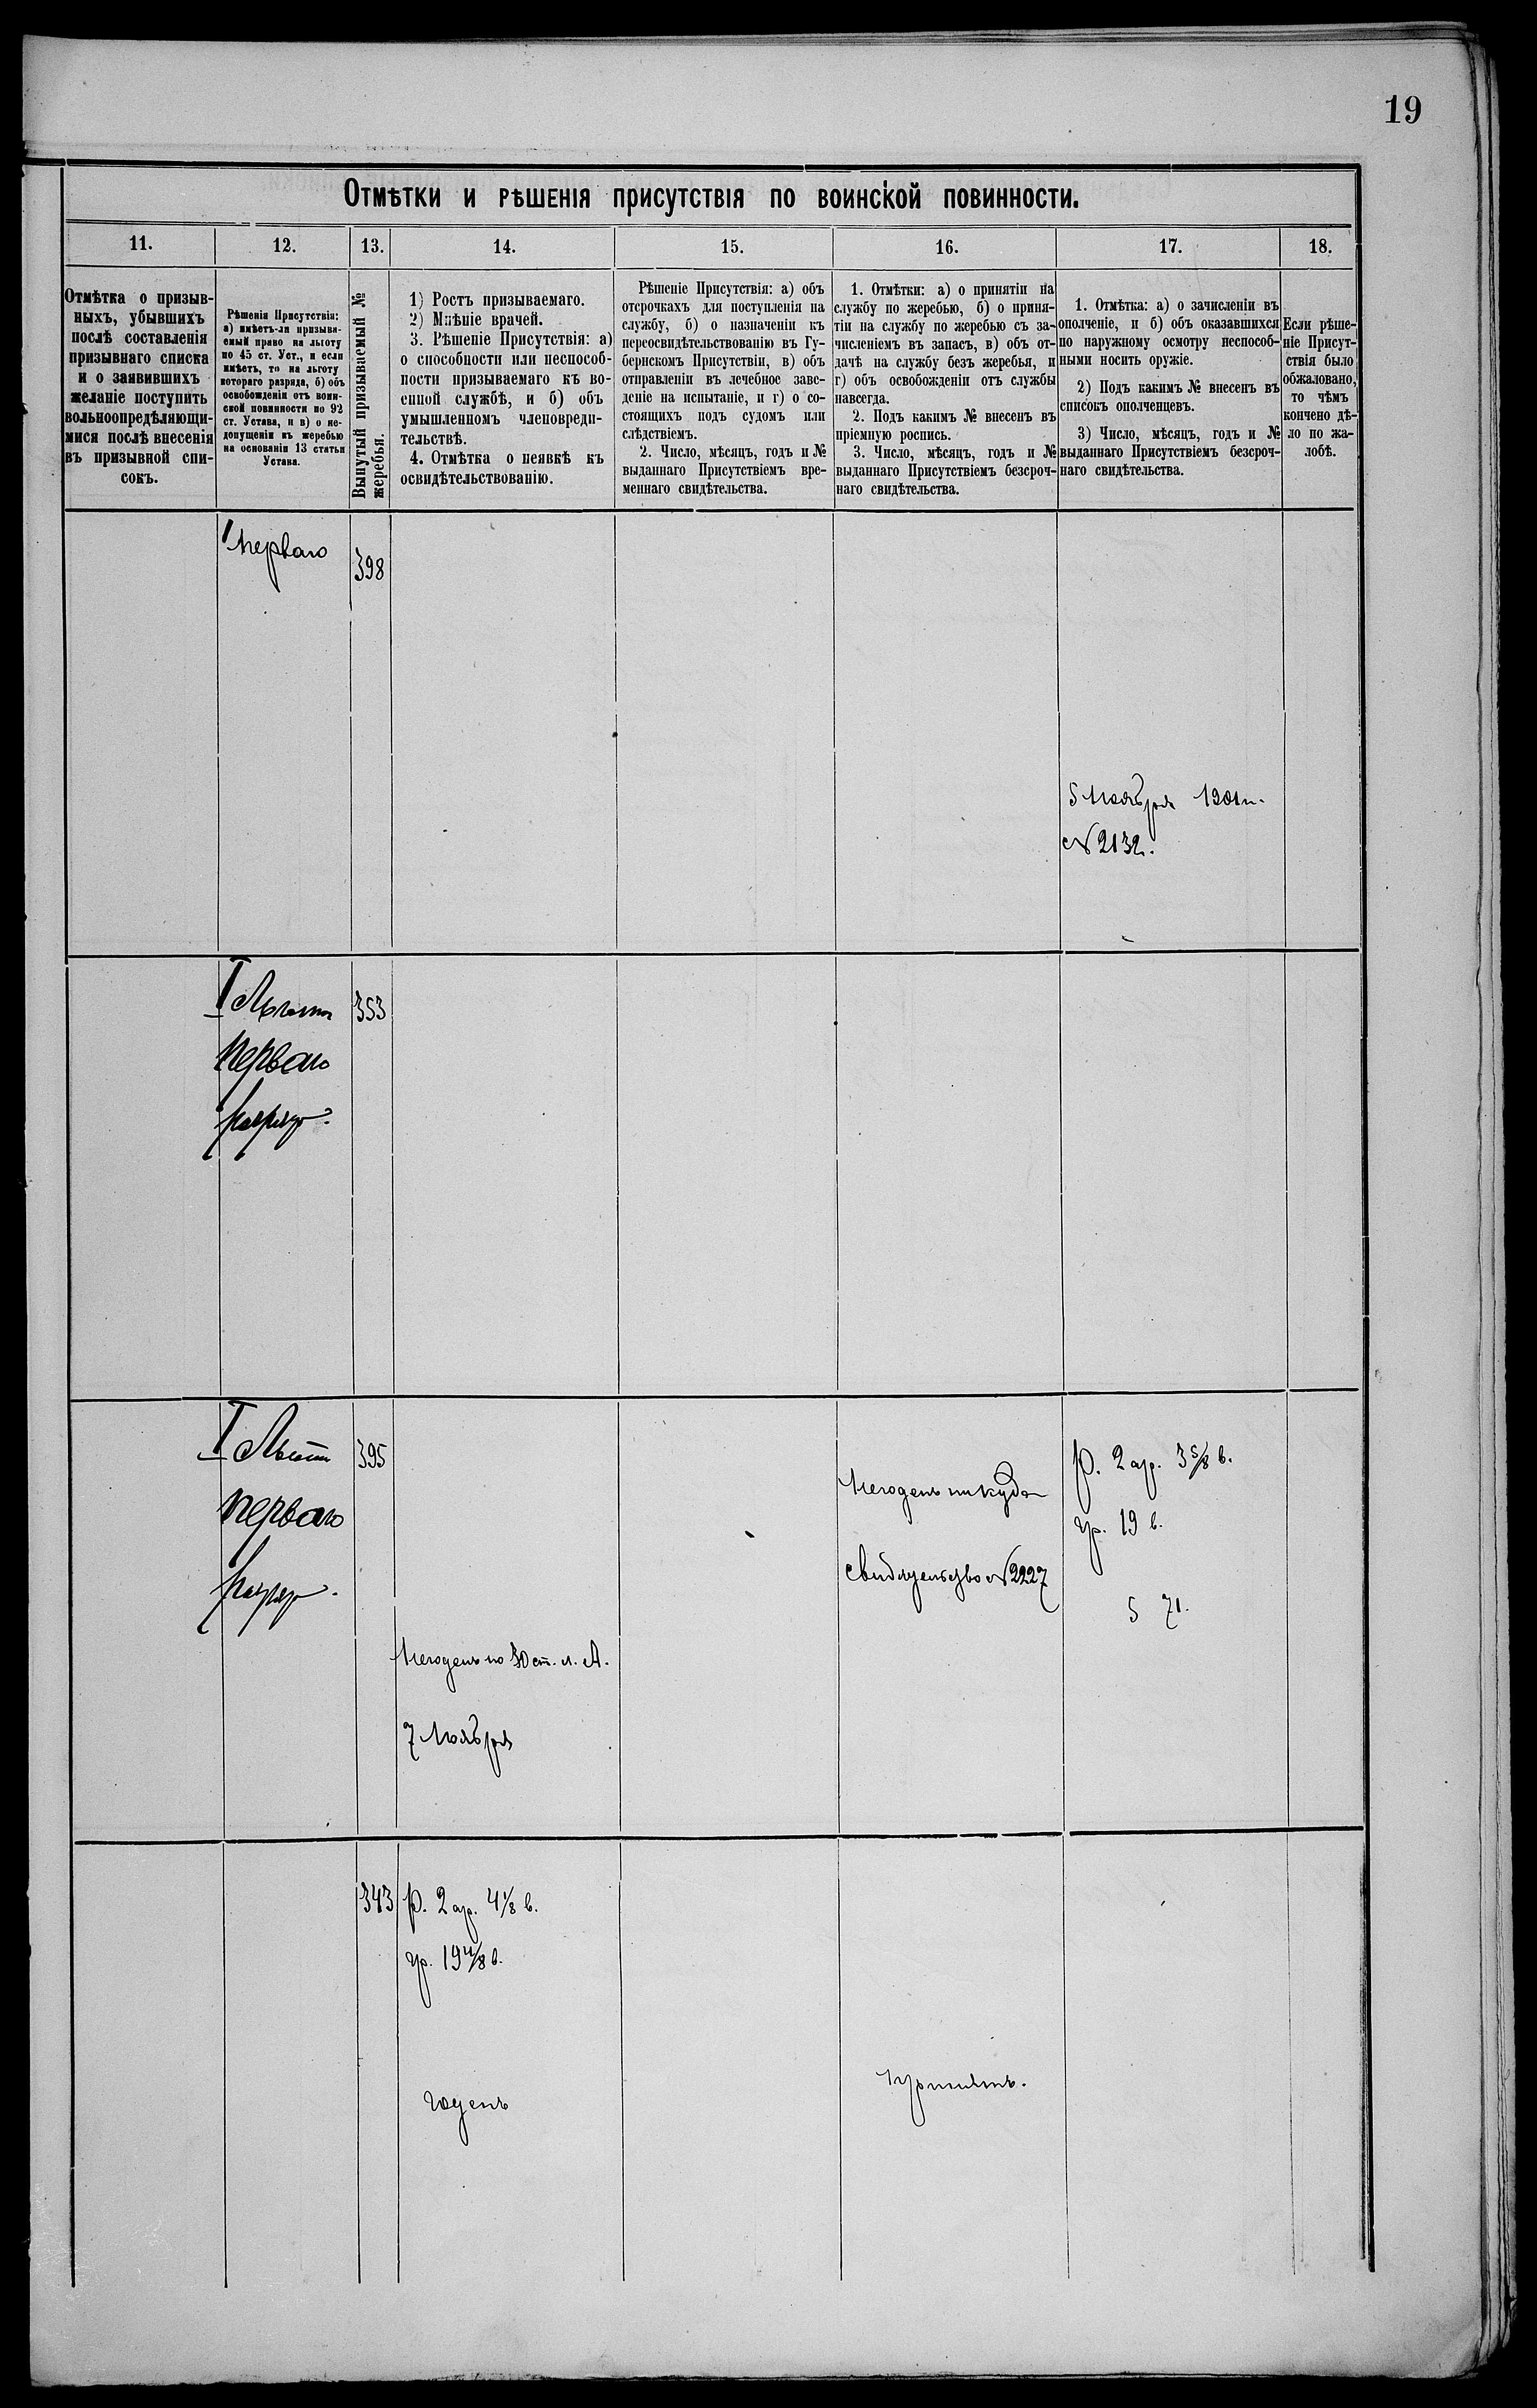 19
Отмѣтки и рѣшенія присутствія по воинской повинности.
11.
12.
13.
14.
15.
16.
17.
18.
Отмѣтка о призыв-
ныхъ, убывшихъ
послѣ составленія
призывнаго списка
и о заявившихъ
желаніе поступить
вольноопредѣляющи-
мися послѣ внесенія
въ призывной спи-
сокъ.
Рѣшенія Присутствія:
а) имѣетъ-ли призыва-
емый право на льготу
по 45 ст. Уст., и если
имѣетъ, то на льготу
котораго разряда, б) объ
освобожденіи отъ воин-
ской повинности по 92
ст. Устава, и в) о не-
допущеніи къ жеребью
на основаніи 13 статьи
Устава.
Вынутый призываемый №
жеребья.
1) Ростъ призываемаго.
2) Мнѣніе врачей.
3. Рѣшеніе Присутствія: а)
о способности или неспособ-
ности призываемаго къ во-
енной службѣ, и б) объ
умышленномъ членовреди-
тельствѣ.
4. Отмѣтка о неявкѣ къ
освидѣтельствованію.
Рѣшеніе Присутствія: а) объ
отсрочкахъ для поступленія на
службу, б) о назначеніи къ
переосвидѣтельствованію въ Гу-
бернскомъ Присутствіи, в) объ
отправленіи въ лечебное заве-
деніе на испытаніе, и г) о со-
стоящихъ подъ судомъ или
слѣдствіемъ.
2. Число, мѣсяцъ, годъ и №
выданнаго Присутствіемъ вре-
меннаго свидѣтельства.
1. Отмѣтки: а) о принятіи на
службу по жеребью, б) о приня-
тіи на службу по жеребью съ за-
численіемъ въ запасъ, в) объ от-
дачѣ на службу безъ жеребья, и
г) объ освобожденіи отъ службы
навсегда.
2. Подъ какимъ № внесенъ въ
пріемную роспись.
3. Число, мѣсяцъ, годъ и №
выданнаго Присутствіемъ безсроч-
наго свидѣтельства.
1. Отмѣтка: а) о зачисленіи въ
ополченіе, и б) объ оказавшихся
по наружному осмотру неспособ-
ными носить оружіе.
2) Подъ какимъ № внесенъ въ
списокъ ополченцевъ.
3) Число, мѣсяцъ, годъ и №
выданнаго Присутствіемъ безсроч-
наго свидѣтельства.
Если рѣше-
ніе Присут-
ствія было
обжаловано,
то чѣмъ
кончено дѣ-
ло по жа-
лобѣ.
перваго
398
5 Ноября 1901 г.
№ 2132.
I Льготы
353
перваго
разряд.
I Льготы
395
перваго
разряд.
Негоденъ по 30 ст. л. А.
7 Ноября
Негоденъ никуда
свидѣтельство № 2227
Р. 2 ар. 3 5/8 в.
гр. 19 в.
5 71.
343
Р. 2 ар. 4 1/8 в.
гр. 19 4/8 в.
годенъ
принятъ.